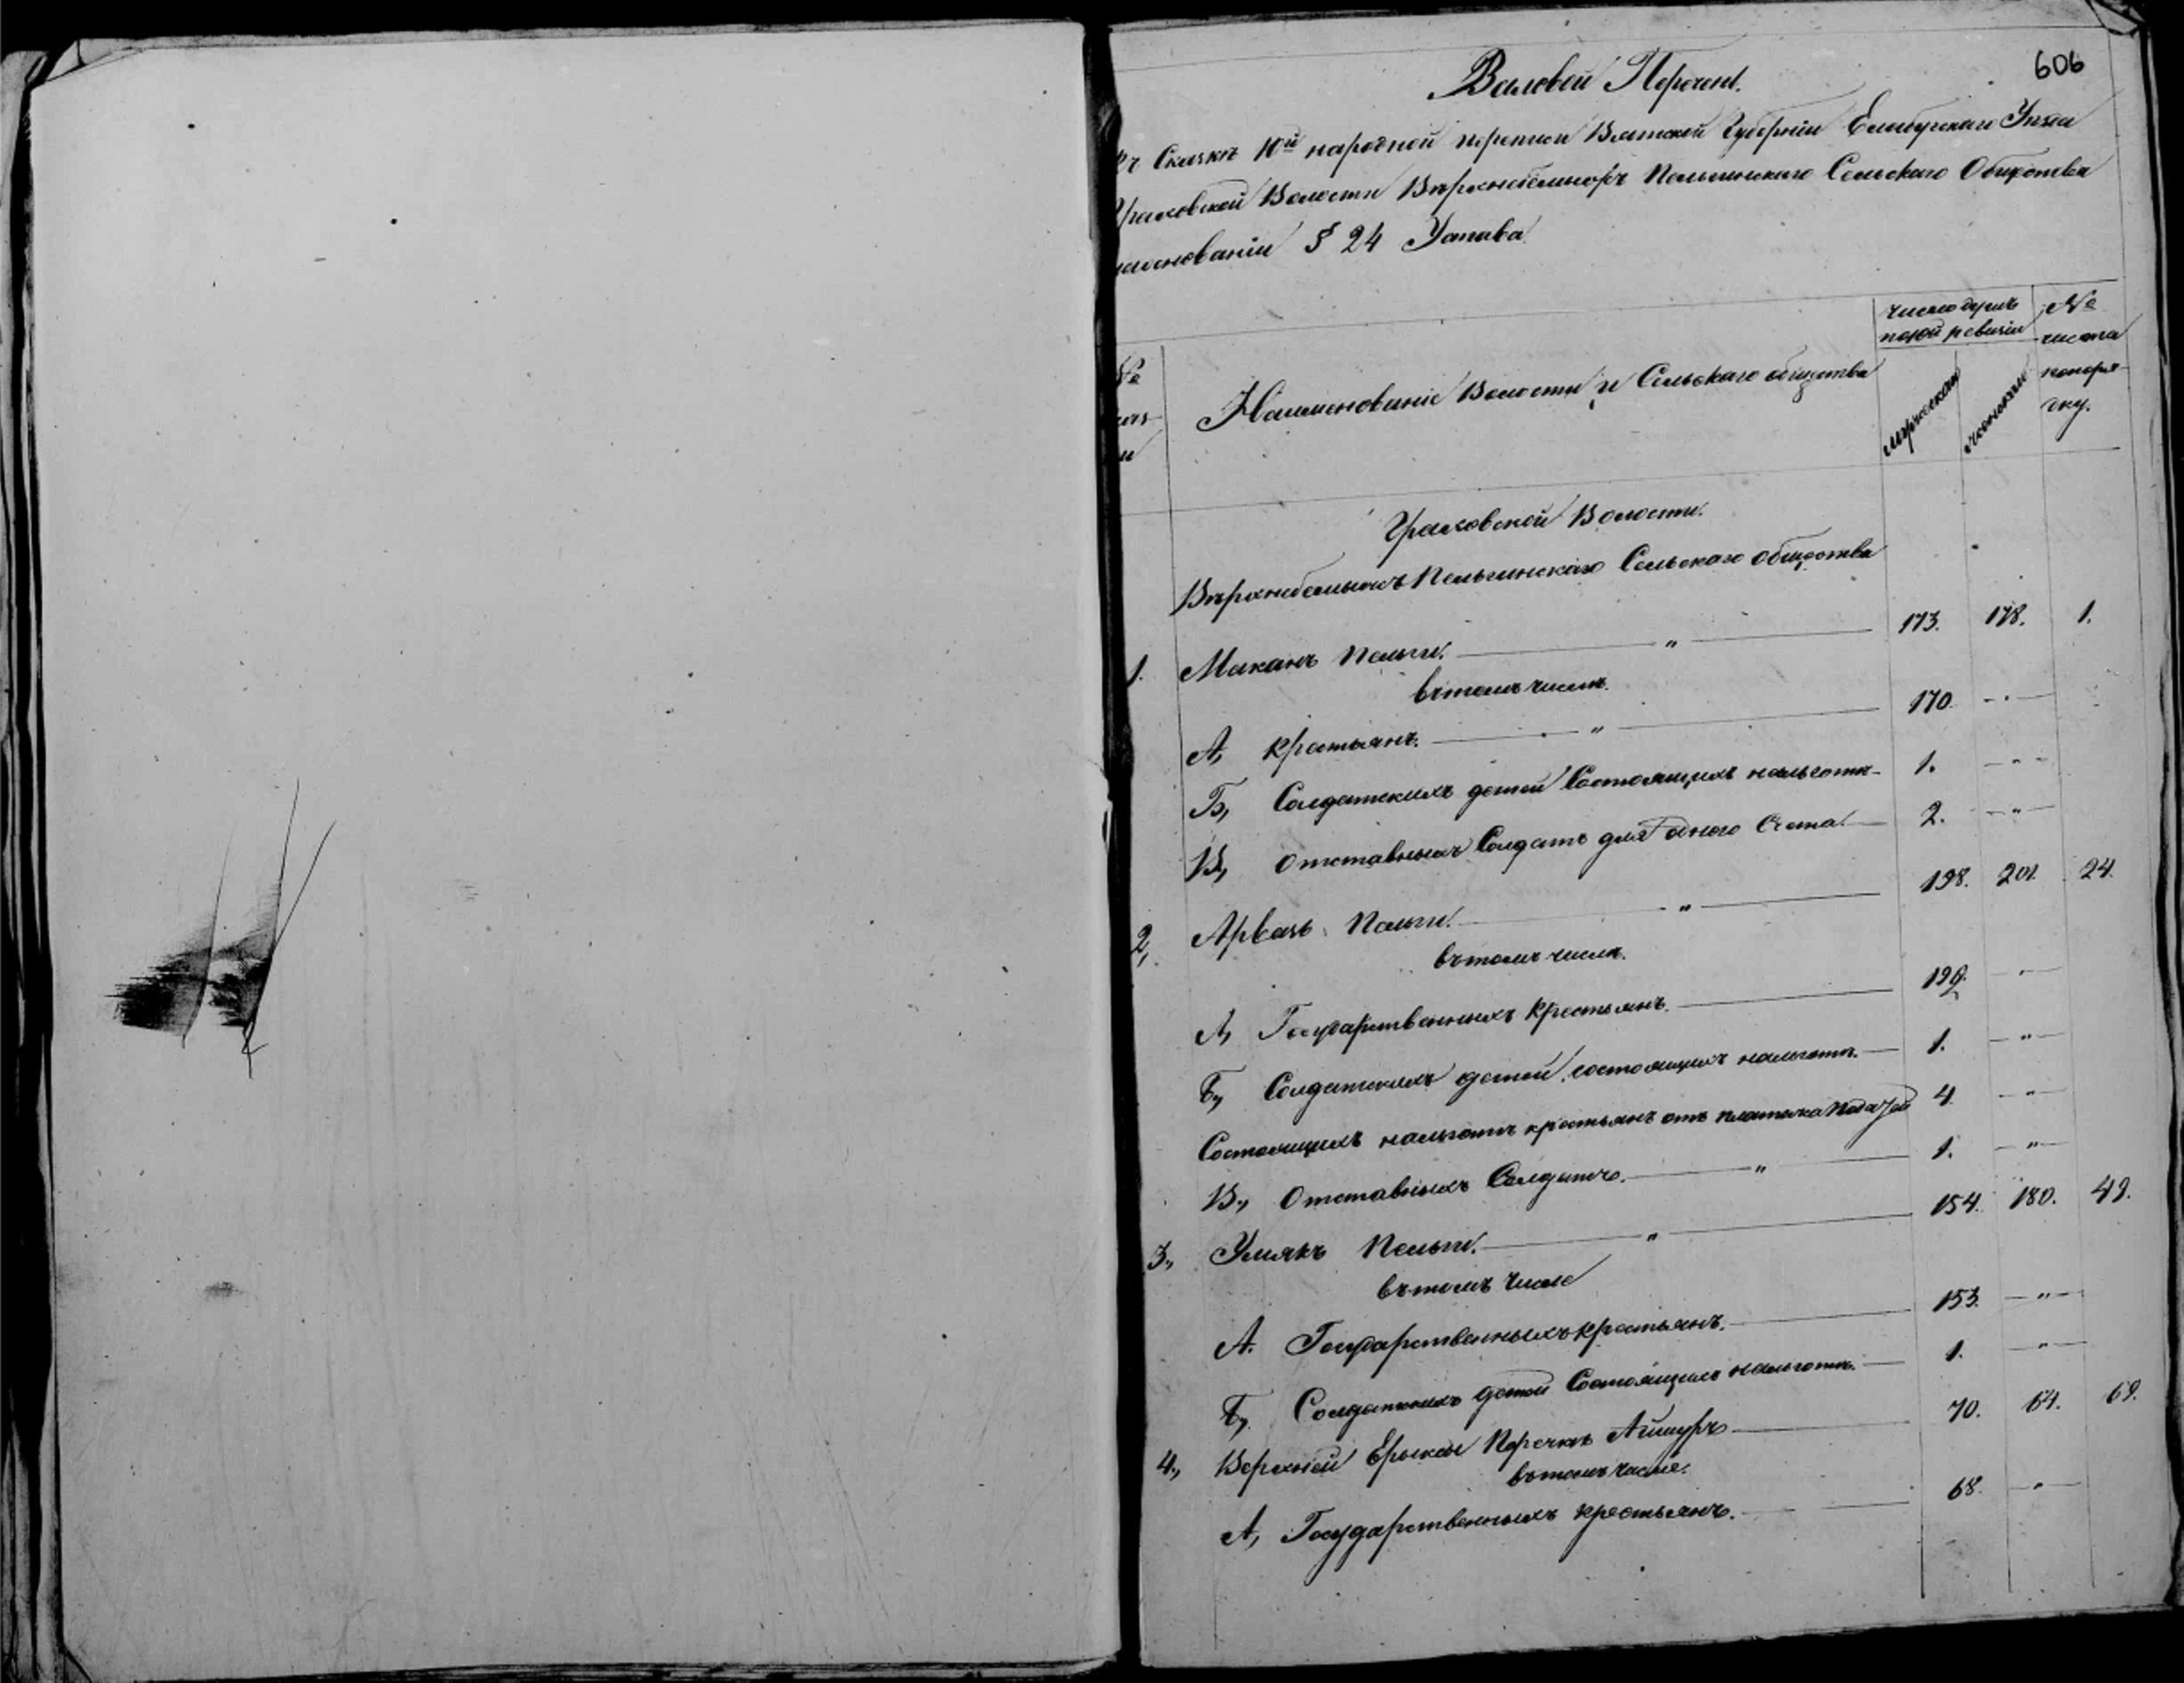 606
Валовой Перечень.
Къ Сказкѣ 10й народной переписи Вятской Губерніи Елабугскаго Уѣзда
Граховской Волости Пельгинскаго Сельскаго Общества
наоснованіи § 24 Устава
№ Наименованіе Волости и Сельскаго общества
число душъ по 10й ревизіи
мужескаго женскаго
№ листа попоряд-
ку.
Граховской Волости.
Пельгинскаго Сельскаго общества
1. Макань Пельги. — " — 173. 178. 1.
въ томъ числѣ.
А, крестьянъ. — " — 170. — " —
Б, Солдатскихъ детей Состоящихъ нальготѣ — 1. — " —
В, Отставныхъ Солдатъ для одного Счета. — 2. — " —
2, Арвазь Пельги. — " — 198. 201. 24.
въ томъ числѣ.
А, Государственныхъ Крестьянъ. — 192. — " —
Б, Солдатскихъ детей, состоящихъ нальготѣ. — 1. — " —
Состоящихъ нальготѣ крестьянъ отъ платежа податей 4. — " —
В., Отставныхъ Солдатъ. — " — 1. — " —
3., Умякъ Пельги. — " — 154. 180. 49.
въ томъ числе
А. Государственныхъ крестьянъ. — 153. — " —
Б, Солдатскихъ детей Состоящихъ нальготѣ. — 1. — " —
4., Верхней Ерыксы Поречкѣ Айшуръ — 70. 64. 69.
въ томъ числе.
А, Государственныхъ крестьянъ. — 68. — " —